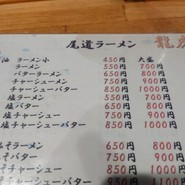 尾道ラーメン 龍
油 ラーメン小 450円 大盛
ラーメン 550円 700円
バターラーメン 650円 800円
チャーシューメン 750円 900円
チャーシューバター 850円 1000円
塩ラーメン 550円 700円
塩バター 650円 800円
塩チャーシュー 750円 900円
塩チャーシューバター 850円 1000円
みそラーメン 650円 800円
みそバター 750円 900円
チャーシュー 850円 1000円